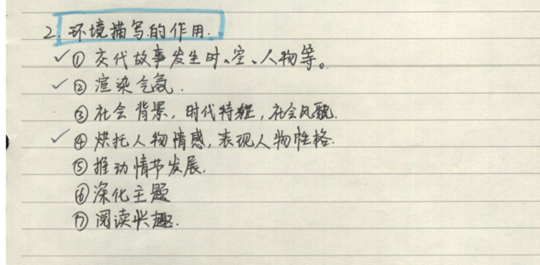 2. 环境描写的作用.
✓① 交代故事发生时、空、人物等。
✓② 渲染气氛.
③ 社会背景，时代特征，社会风貌.
✓④ 烘托人物情感，表现人物性格.
⑤ 推动情节发展.
⑥ 深化主题
⑦ 阅读兴趣.